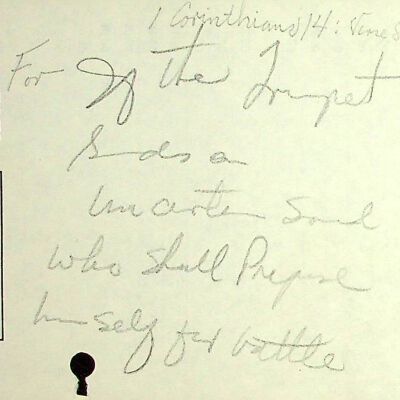 1 Corinthians 14: Verse 8
For If the Trumpet
Sends an
Uncerten Sound
Who Shall Prepare
himself for battle